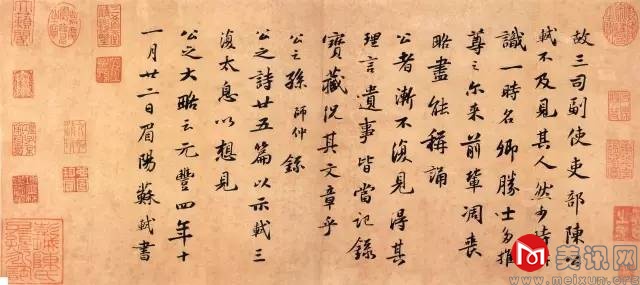 故三司副使吏部陳公
軾不及見其人然少時
識一時名卿勝士多推
尊之尔来前輩凋喪
略盡能稱誦
公者漸不復見得其
理言遺事皆當記錄
寶藏況其文章乎
公之孫師仲錄
公之詩廿五篇以示軾三
復太息以想見
公之大略云元豐四年十
一月廿二日眉陽蘇軾書
美讯网